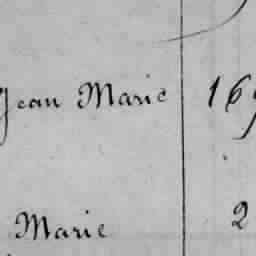 Jean Marie 169
Marie 2